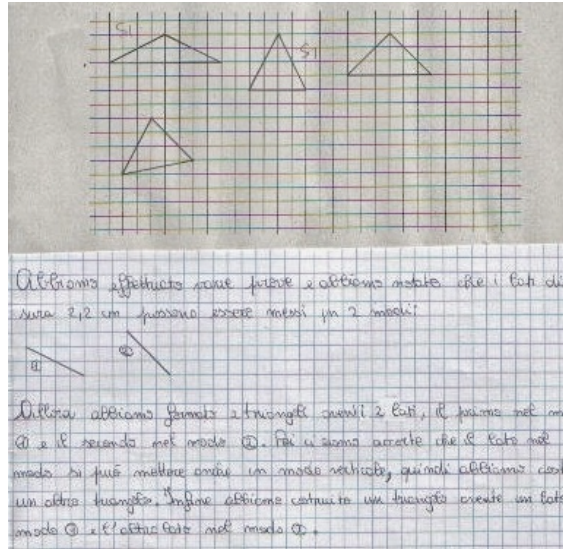 SI
SI
Abbiamo effettuato varie prove e abbiamo notato che i lati di
sura 2,2 cm possono essere messi in 2 modi:
① ②
Allora abbiamo formato 2 triangoli aventi 2 lati, il primo nel m
① e il secondo nel modo ②. Poi ci siamo accorte che il lato nel
modo si può mettere anche in modo verticale, quindi abbiamo cost
un altro triangolo. Infine abbiamo costruito un triangolo avente un lato
modo ② e l'altro lato nel modo ①.